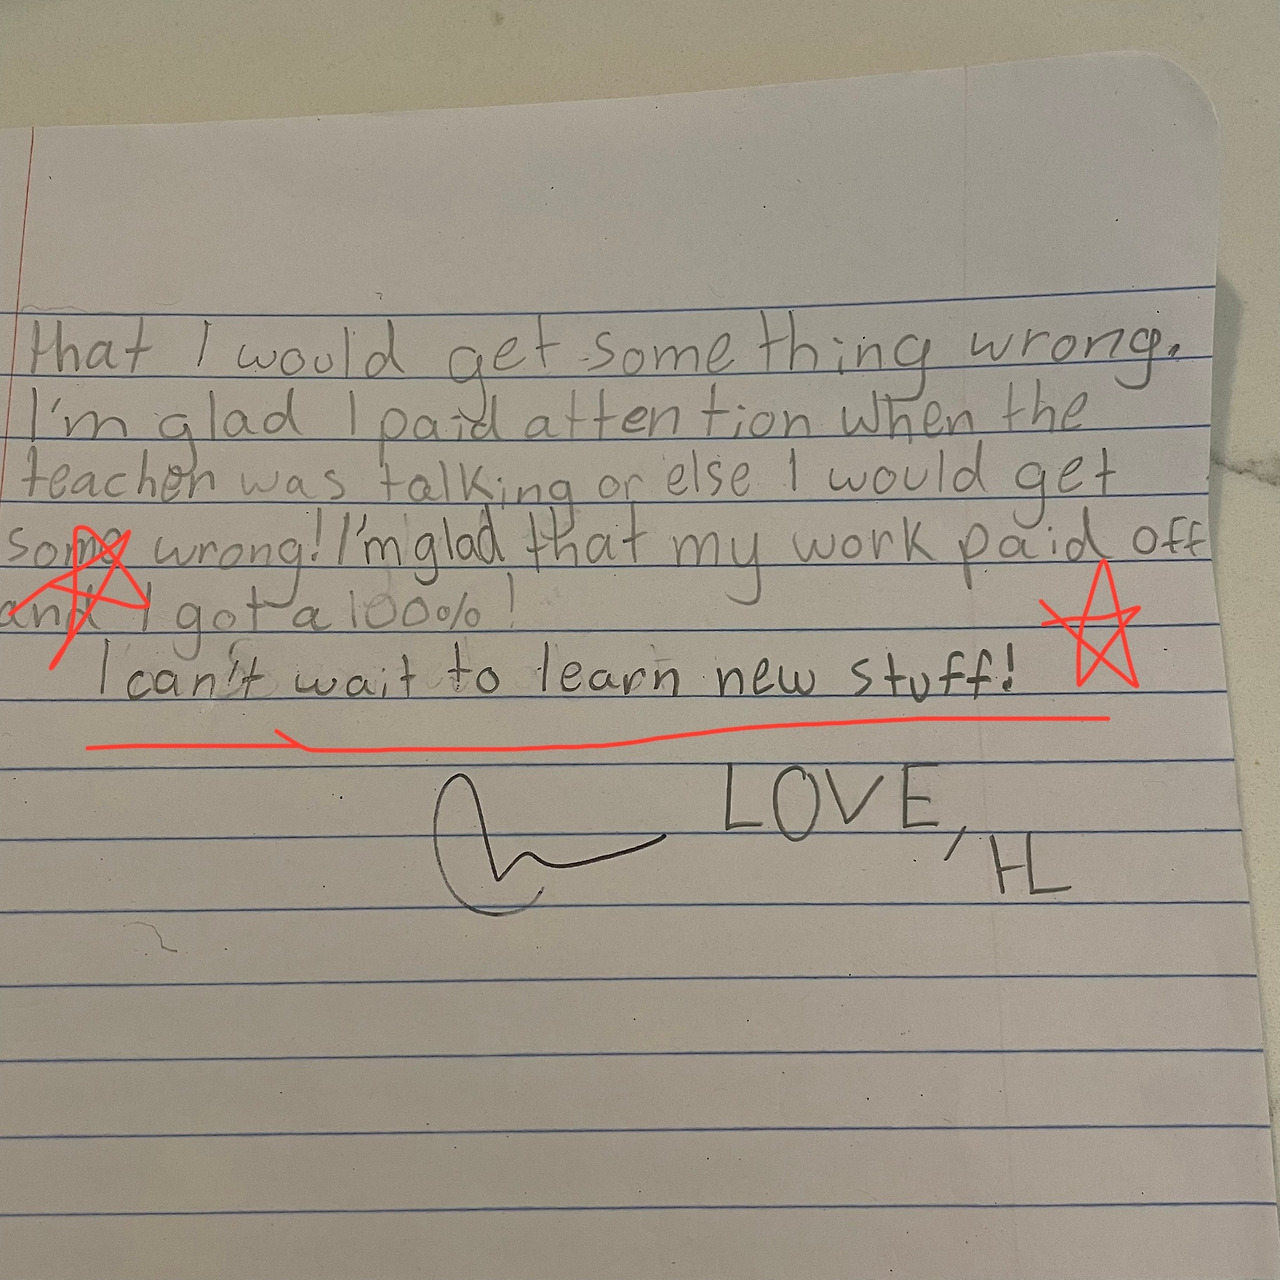 that I would get something wrong.
I'm glad I paid attention when the
teacher was talking or else I would get
some wrong! I'm glad that my work paid off
and I got a 100%!
I can't wait to learn new stuff!
LOVE,
HL